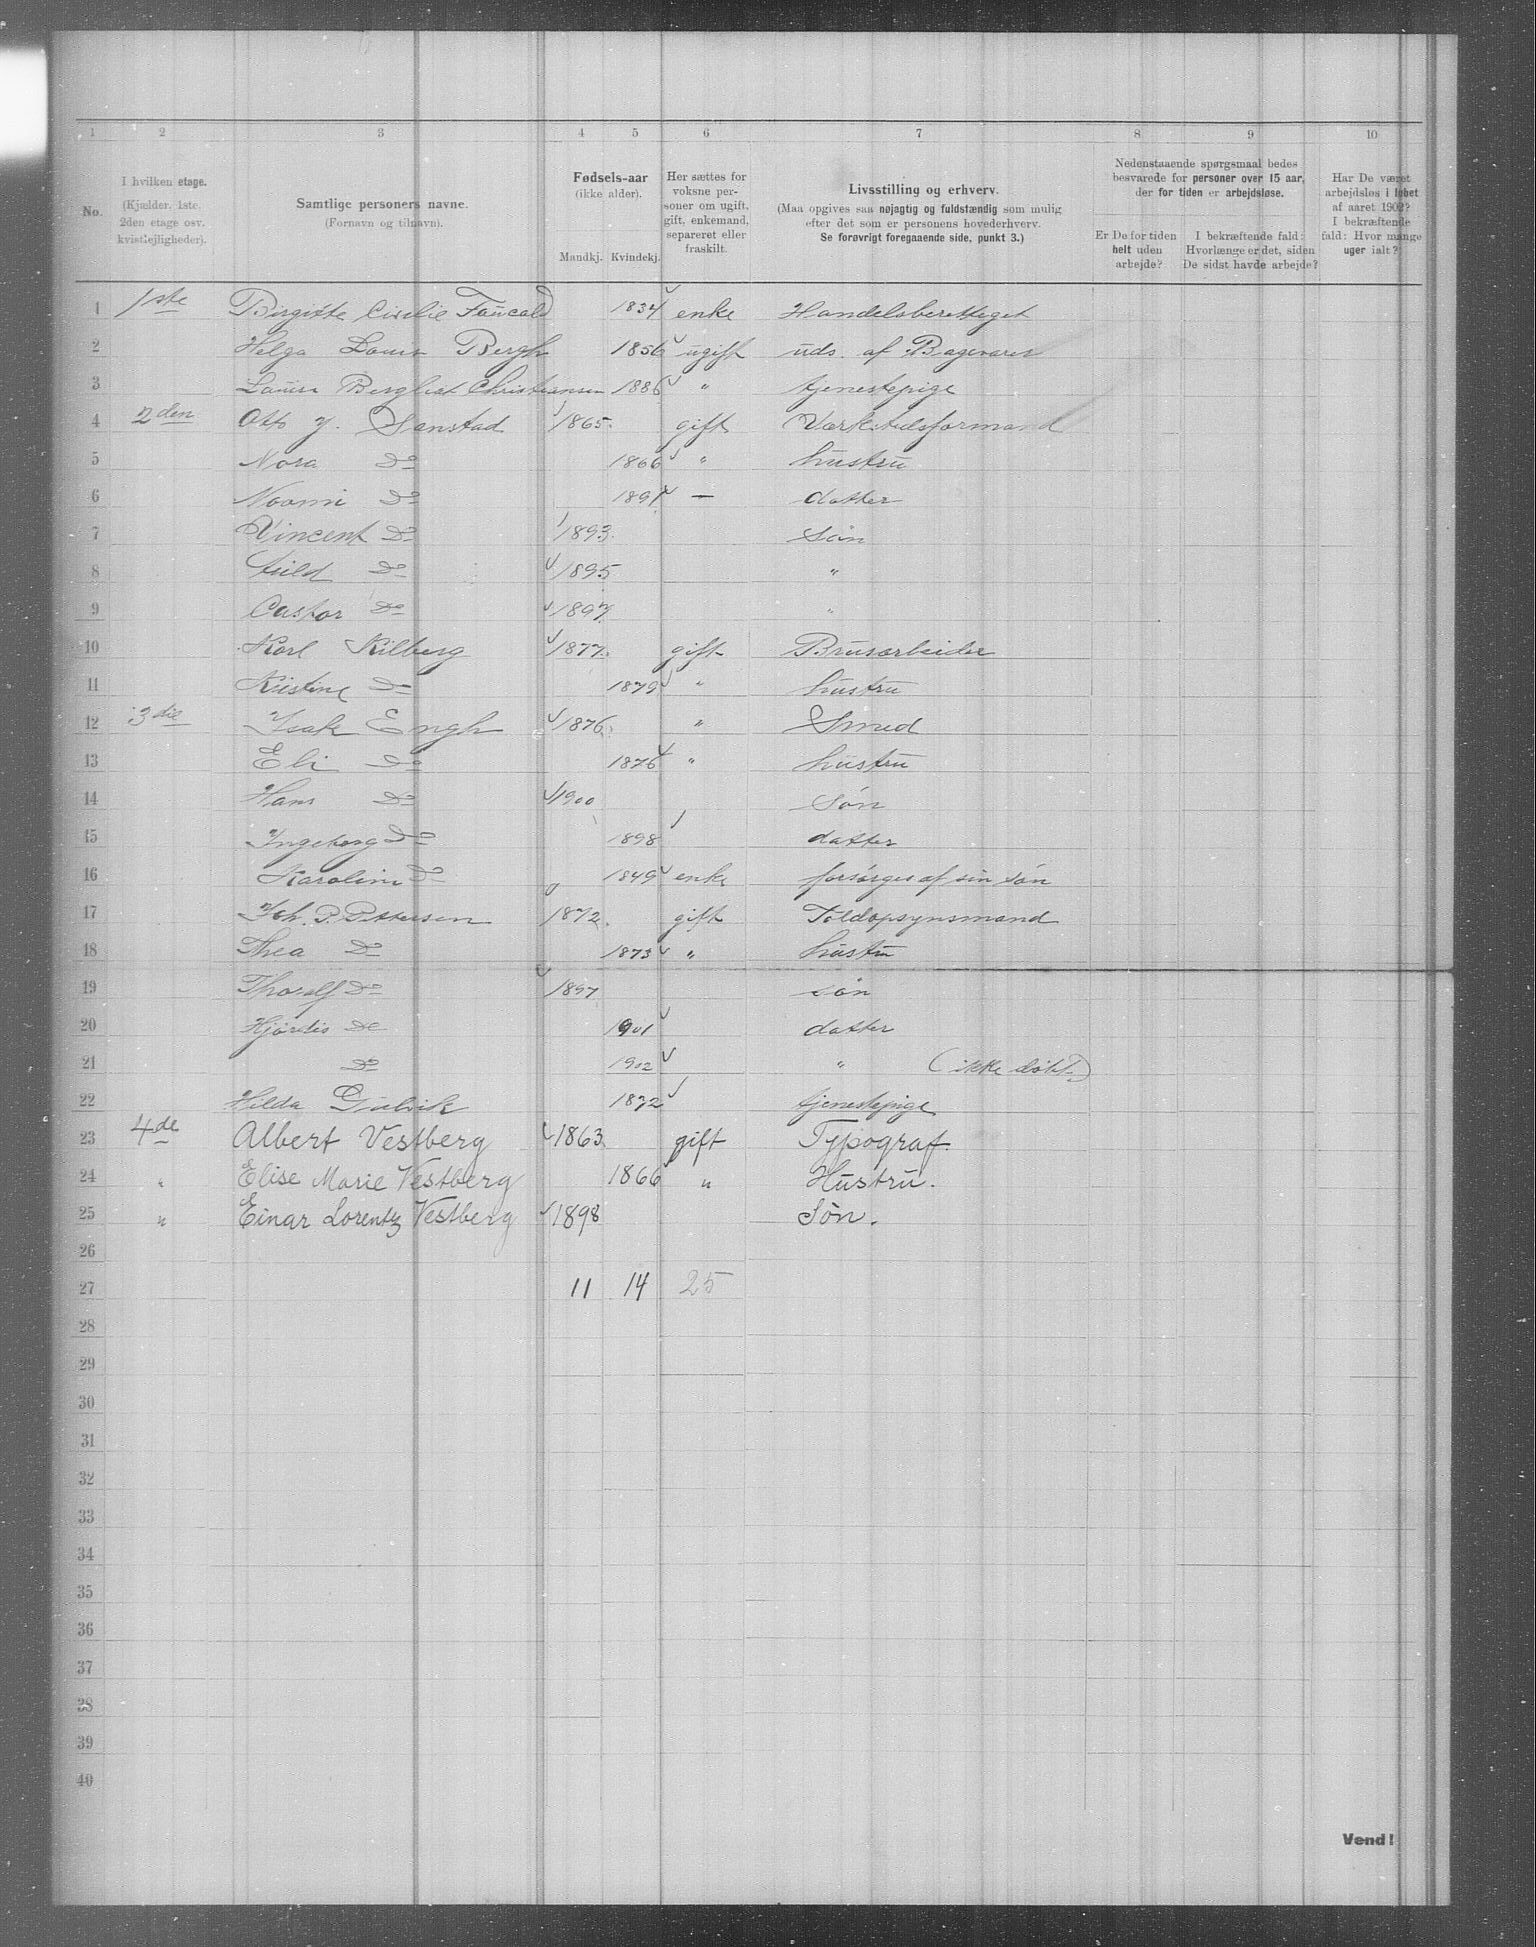 1 2 3 4 5 6 7 8 9 10
No.
I hvilken etage.
(Kjælder, 1ste.
2den etage osv.
kvistlejligheder).
Samtlige personers navne.
(Fornavn og tilnavn).
Fødsels-aar
(ikke alder).
Mandkj. Kvindekj.
Her sættes for
voksne per-
soner om ugift,
gift, enkemand,
separeret eller
fraskilt.
Livsstilling og erhverv.
(Maa opgives saa nøjagtig og fuldstændig som mulig
efter det som er personens hovederhverv.
Se forøvrigt foregaaende side, punkt 3.)
Nedenstaaende spørgsmaal bedes
besvarede for personer over 15 aar,
der for tiden er arbejdsløse.
Er De for tiden
helt uden
arbejde?
I bekræftende fald:
Hvorlænge er det, siden
De sidst havde arbejde?
Har De været
arbejdsløs i løbet
af aaret 1902?
I bekræftende
fald: Hvor mange
uger ialt?
1 1ste Birgitte Cicilie 1834 enke Handelsberettiget
2 Helga Louis Bergh 1856 ugift uds. af Bagevarer
3 Louise Bergliot Christiansen 1886 " tjenestepige
4 2den Otto J. Sanstad 1865 gift Værkstedsformand
5 Nora Do 1866 " hustru
6 Noomi Do 1891 — datter
7 Vincent Do 1893 søn
8 Do 1895 "
9 Castor Do 1897 "
10 Karl Kilberg 1877 gift Brusarbeider
11 Kristine Do 1879 " hustru
12 3die Isak Engh 1876 " Smed
13 Eli Do 1876 " hustru
14 Hans Do 1900 søn
15 Ingeborg Do 1898 datter
16 Karoline Do 1849 enke forsørges af sin søn
17 Joh. P. Pettersen 1872 gift Toldopsynsmand
18 Thea Do 1873 " hustru
19 Thoralf Do 1897 søn
20 Hjørdis Do 1901 datter
21 Do 1902 " (ikke døbt)
22 Hilda 1872 tjenestepige
23 4de Albert Vestberg 1863 gift Typograf.
24 " Elise Marie Vestberg 1866 " Hustru.
25 " Einar Lorentz Vestberg 1898 Søn.
26
27 11 14 25
28
29
30
31
32
33
34
35
36
37
38
39
40
Vend!